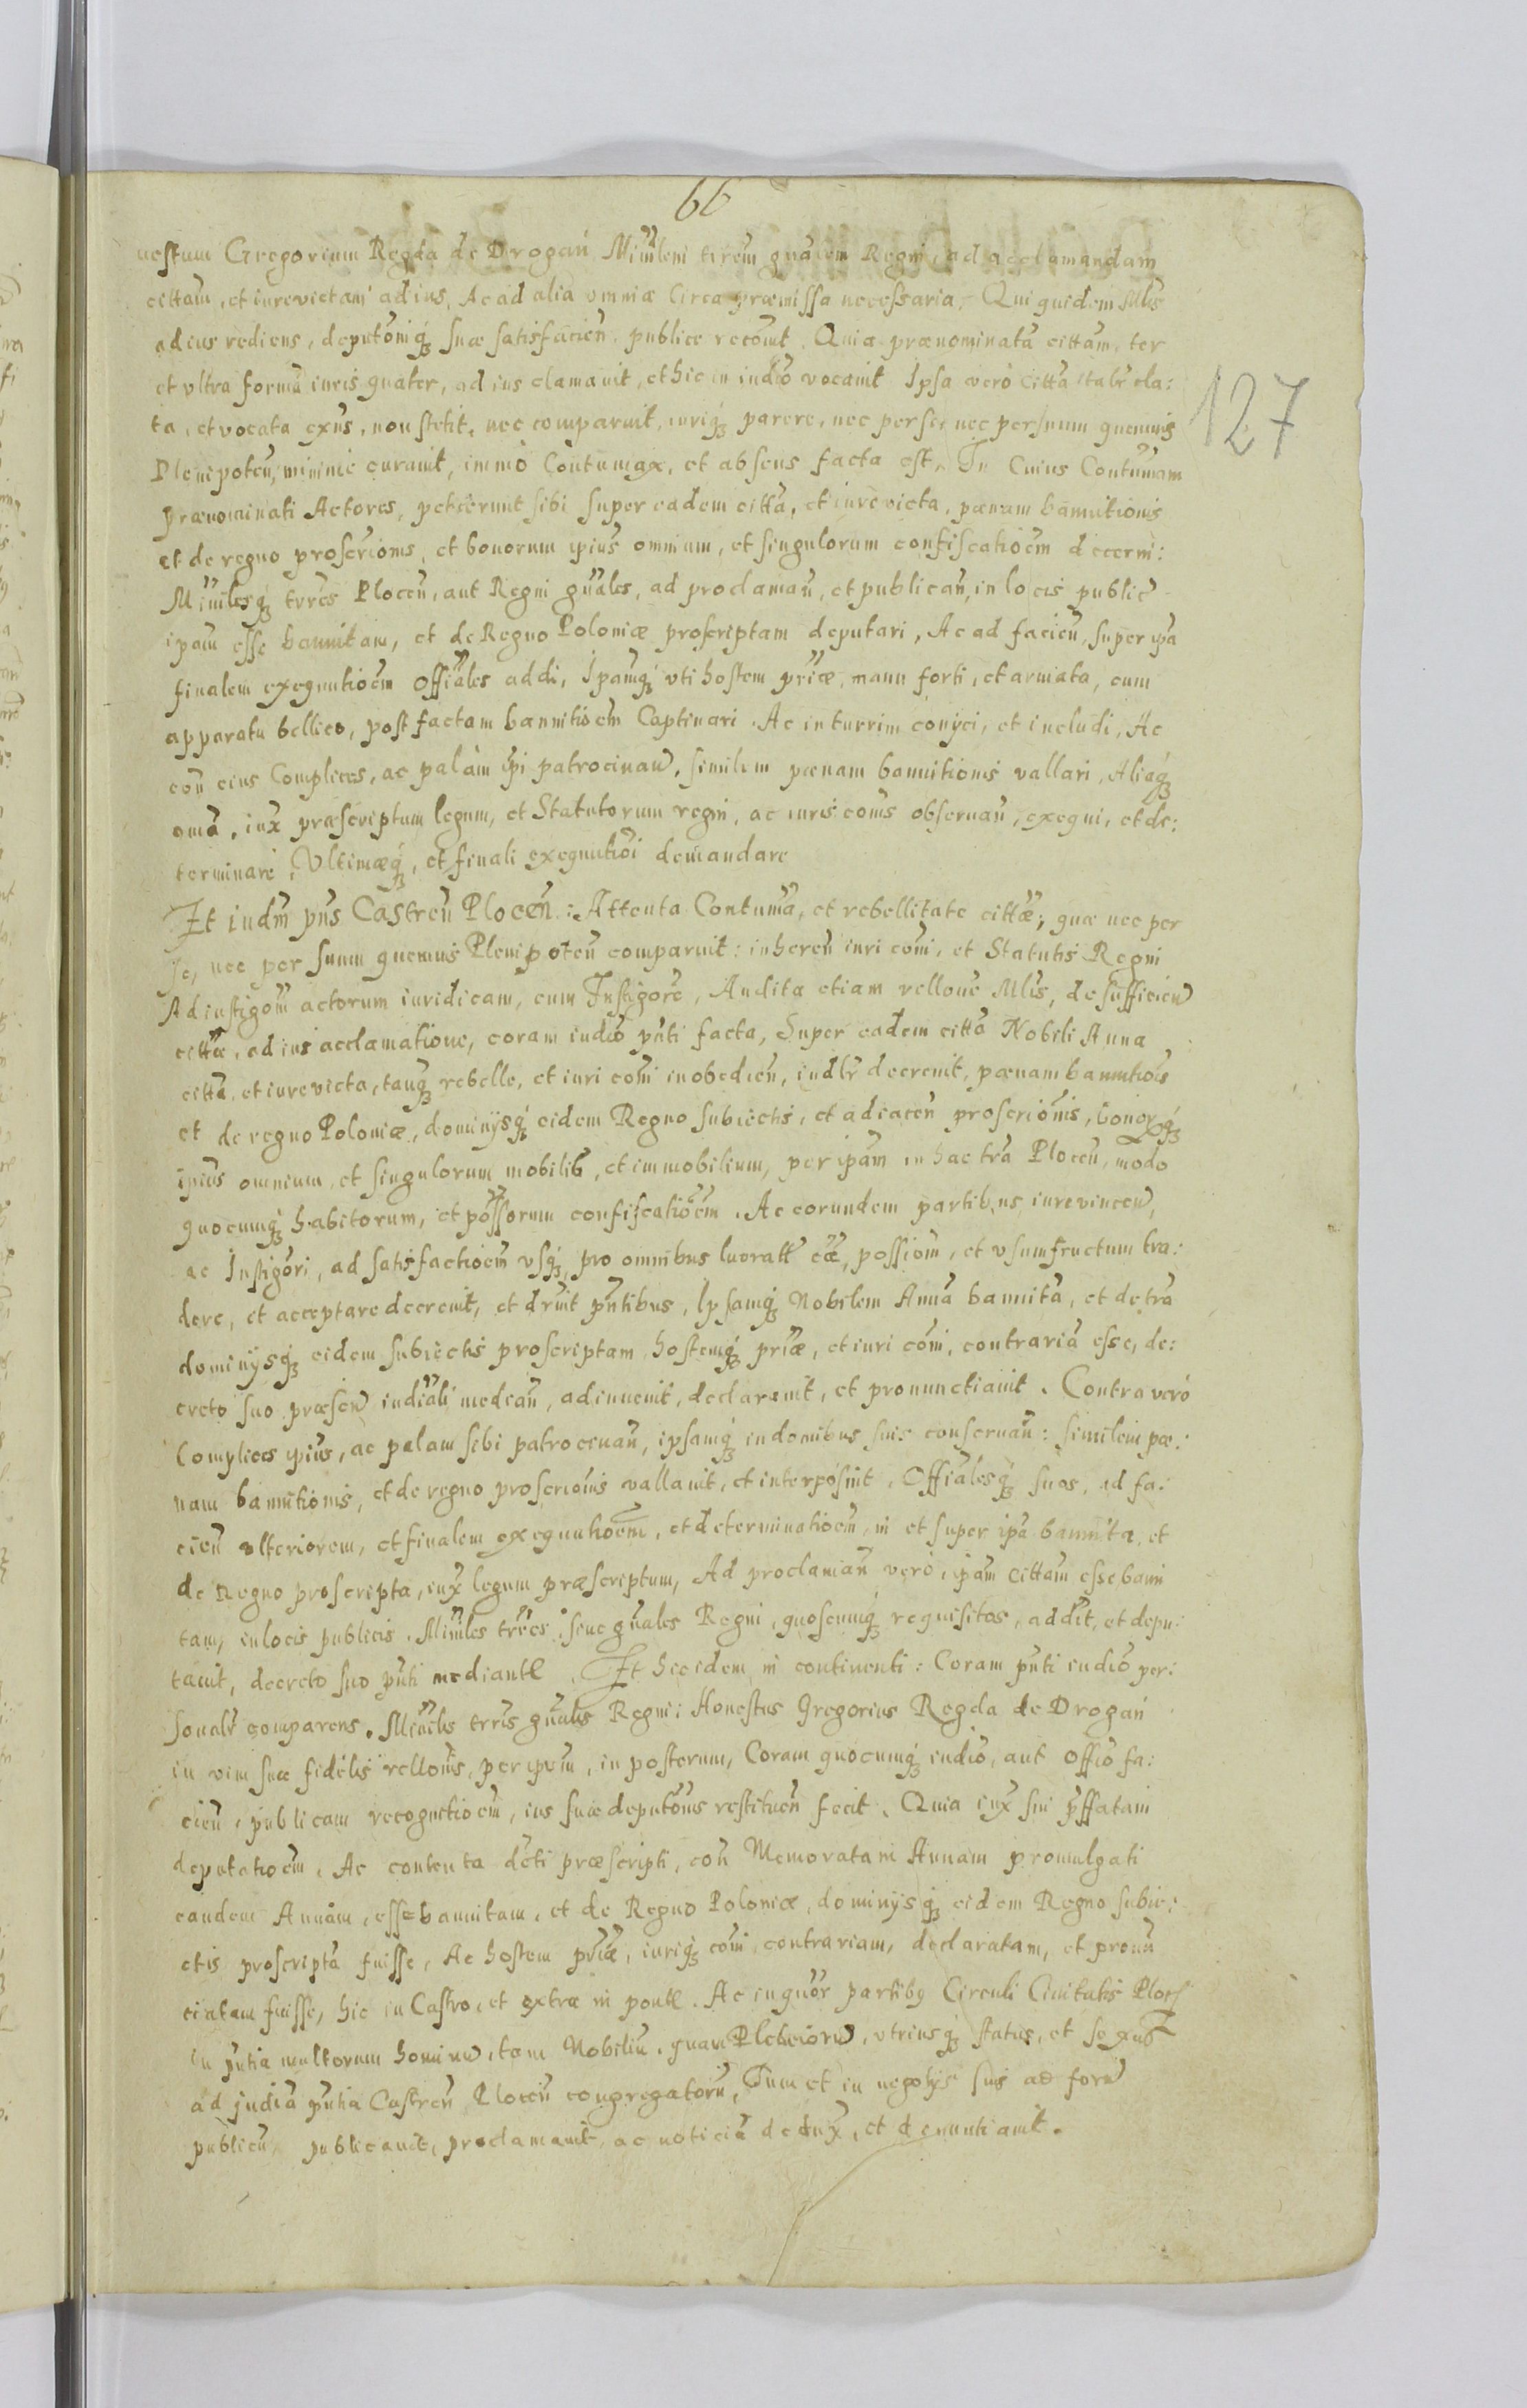 66
nestum Gregorium Regda de Drogań Minľem trem gnalem Regni, ad acclamandam
cittam, et iurevictam ad ius. Ac ad alia omnia circa præmissa necessaria. Qui quidem Mlis
ad ius rediens, deputõniq́ꝫ suæ satisfacień. publice recõuit. Quia prænominatã cittam, ter
et ultra formã iuris quater, ad ius clamauit, et hic in iudiõ vocauit Ipsa verò citta italr̃ cla:
ta, et vocata exñs, non stetit, nec comparuit, iuriq́ꝫ parere, nec per se, nec per suum quemuis
Plenipoteñ, minimè curauit, immò Contumax, et absens facta est. In Cuius Contumam
Prænominati Actores, petierunt sibi super eadem citta, et iurevicta, pænam bannitionis
et de regno proscrĩonis, et bonorum ipius omnium, et singulorum confiscatiõem decerni:
Minľesq́ꝫ trrẽs Ploceñ, aut Regni gñales, ad proclamañ, et publicañ, in locis public
ipam esse bannitam, et de Regno Poloniæ proscriptam deputari, Ac ad facień, super ipa
finalem exequutiõem Offiales addi, Ipamq́ꝫ uti hostem pr̃iæ, manu forti, et armata, cum
apparatu bellico, post factam bannitiõem Captiuari. Ac in turrim conijci, et includi, Ac
coñ eius Complices, ac palàm ipi patrocinañ, similem pænam bannitionis vallari, Aliaq́ꝫ
oma, iux præscriptum legum, et Statutorum regni, ac iuris comis obseruañ, exequi, et de:
terminari, Ultimæq́ꝫ, et finali exequutiõi demandare
Et iudm pñs Castreñ Ploceñ: Attenta Contuma, et rebellitate cittæ, quæ nec per
se, nec per suum quemuis Plenipoteñ comparuit: inhereñ iuri comi, et Statutis Regni
Ad instigom actorum iuridicam, cum Instigore, Audita etiam rellone Mlis, de sufficieñ
cittæ, ad ius acclamatione, coram iudiõ pñti facta, Super eadem citta Nobili Anna
citta, et iurevicta, tanq́ꝫ rebelle, et iuri comi inobedień, iudlr̃ decreuit, pænam bannitiõis
et de regno Poloniæ, dominijsq́ꝫ eidem Regno subiectis, et adiaceñ proscriõnis, bonorq́ꝫ
ipius omnium, et singulorum mobiliũ, et immobilium, per ipam in hac tra Ploceñ, modo
quocumq́ꝫ habitorum, et possorum confiscatiõem. Ac eorundem partibus iurevinceñ,
ac Instigori, ad satisfactiõem usq́ꝫ, pro omnibus lucratt eæ, possiom, et usumfructum tra:
dere, et acceptare decreuit, et druit pñtibus, Ipsamq́ꝫ Nobilem Annã bannitã, et de tra
dominijsq́ꝫ eidem subiectis proscriptam, hostemq́ꝫ pr̃iæ, et iuri comi, contrariã esse, de:
creto suo præseñ iudiali mediañ, adinuenit, declarauit, et pronunctiauit. Contra verò
Complices ipius, ac palam sibi patrocinañ, ipsamq́ꝫ in domibus suis conseruañ: similem pæ:
nam bannitionis, et de regno proscriõnis vallauit, et interposuit, Offialesq́ꝫ suos, ad fa:
cień ulteriorem, et finalem exequutiõem, et determinatiõem, in et super ipa bannita, et
de Regno proscripta, iux legum præscriptum, Ad proclamañ verò, ipam cittam esse banni
tam, in locis publicis, Minľes trres, siue gñales Regni, quoscumq́ꝫ requisitos, addit, et depu:
tauit, decreto suo pñti mediantẽ. Et hic idem in continenti: Coram pñti iudiõ per:
sonalr̃ comparens. Minľis trris gñalis Regni: Honestus Gregorius Regda de Drogań
in vim suæ fidelis rellonis, per ipum, in posterum, Coram quocumq́ꝫ iudiõ, aut Offiõ fa:
cień, publicam recognitiõem, ius suæ deputõnis restitueñ fecit. Quia iux sui pffatam
deputatiõem, Ac contenta dcti præscripti, coñ Memoratam Annam promulgati
eandem Annam, esse bannitam, et de Regno Poloniæ, dominijsq́ꝫ eidem Regno subie:
ctis proscriptã fuisse, Ac hostem pr̃iæ, iuriq́ꝫ comi, contrariam, declaratam, et pronun
ciatam fuisse, hic in Castro, et extra in ponte. Ac in quõr partibꝯ Circuli Ciuitatis Ploceñ
In pñtia multorum hominũ, tam Nobiliũ, quam Plebeiorũ, utriusq́ꝫ status, et sexus
ad judia pñtia Castreñ Ploceñ congregatorũ, Tum et in negotijs suis ad forũ
publicũ, publicauit, proclamauit, ac noticiã dedux, et denuntiauit.
127